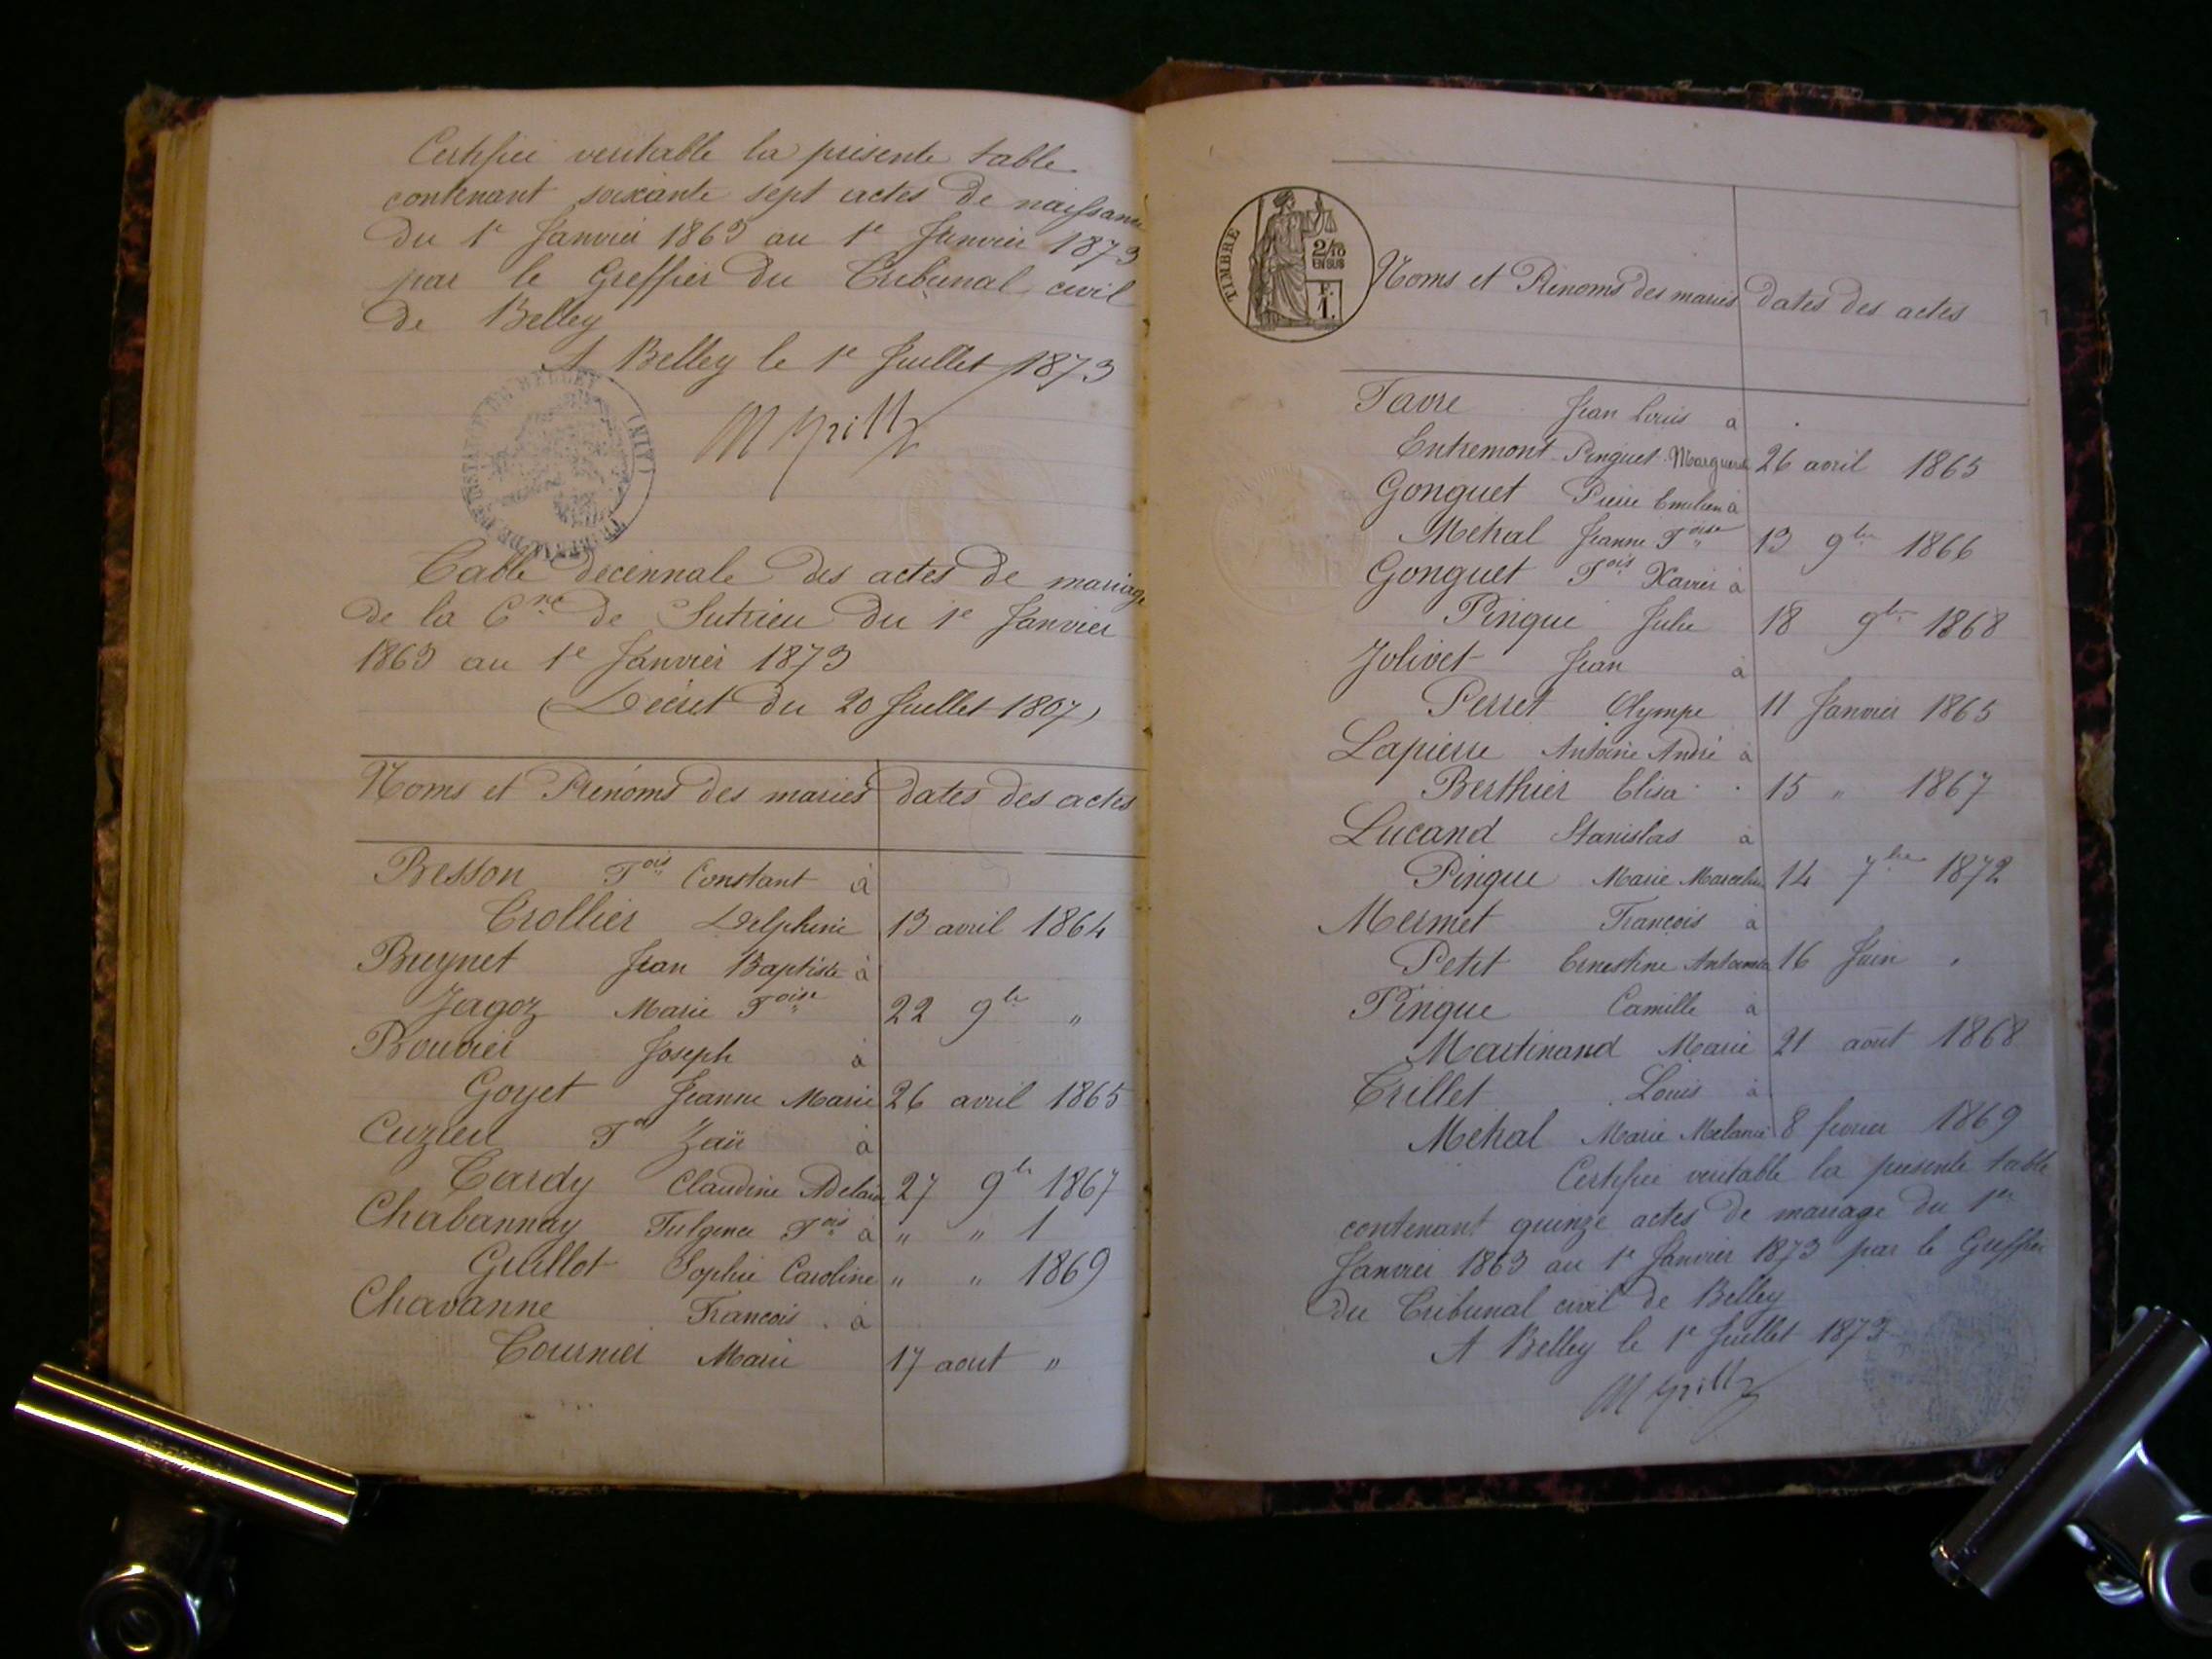 Certifiée veritable la présente table
contenant soixante sept actes de naissance
du 1e Janvier 1863 au 1e Janvier 1873
par le Greffier du Tribunal civil
de Belley
A Belley le 1e Juillet 1873
Table décennale des actes de mariage
de la Cne de Sutrieu du 1e Janvier
1863 au 1e Janvier 1873
(Décret du 20 Juillet 1807)
Noms et Prénoms des mariés dates des actes
Besson Fois Constant à
Trollier Delphine 13 avril 1864
Buynet Jean Baptiste à
Jagoz Marie Foise 22 9bre "
Bouvier Joseph à
Goyet Jeanne Marie 26 avril 1865
Cuzieu Fd à
Tardy Claudine 27 9bre 1867
Chabannay Fulgence Fois à " " 1
Guillot Sophie Caroline " " 1869
Chavanne Francois à
Tournier Marie 17 aout "
TIMBRE
2/10
EN SUS
F.
1.
Noms et Prenoms des mariés dates des actes
Favre Jean Louis à
Entremont Pinguet Marguerite 26 avril 1865
Gonguet Pierre Emilien à
Métral Jeanne Foise 13 9bre 1866
Gonguet Fois Xavier à
Pingue Julie 18 9bre 1868
Jolivet Jean à
Perret Olympe 11 Janvier 1865
Lapierre Antoine André à
Berthier Elisa 15 " 1867
Lucand Stanislas à
Pingue Marie 14 7bre 1872
Mermet François à
Petit Ernestine 16 Juin "
Pingue Camille à
Martinand Marie 21 août 1868
Trillet Louis à
Métral Marie Melanie 8 fevrier 1869
Certifiée veritable la presente table
contenant quinze actes de mariage du 1er
Janvier 1863 au 1e Janvier 1873 par le Greffier
du Tribunal civil de Belley
A Belley le 1e Juillet 1873